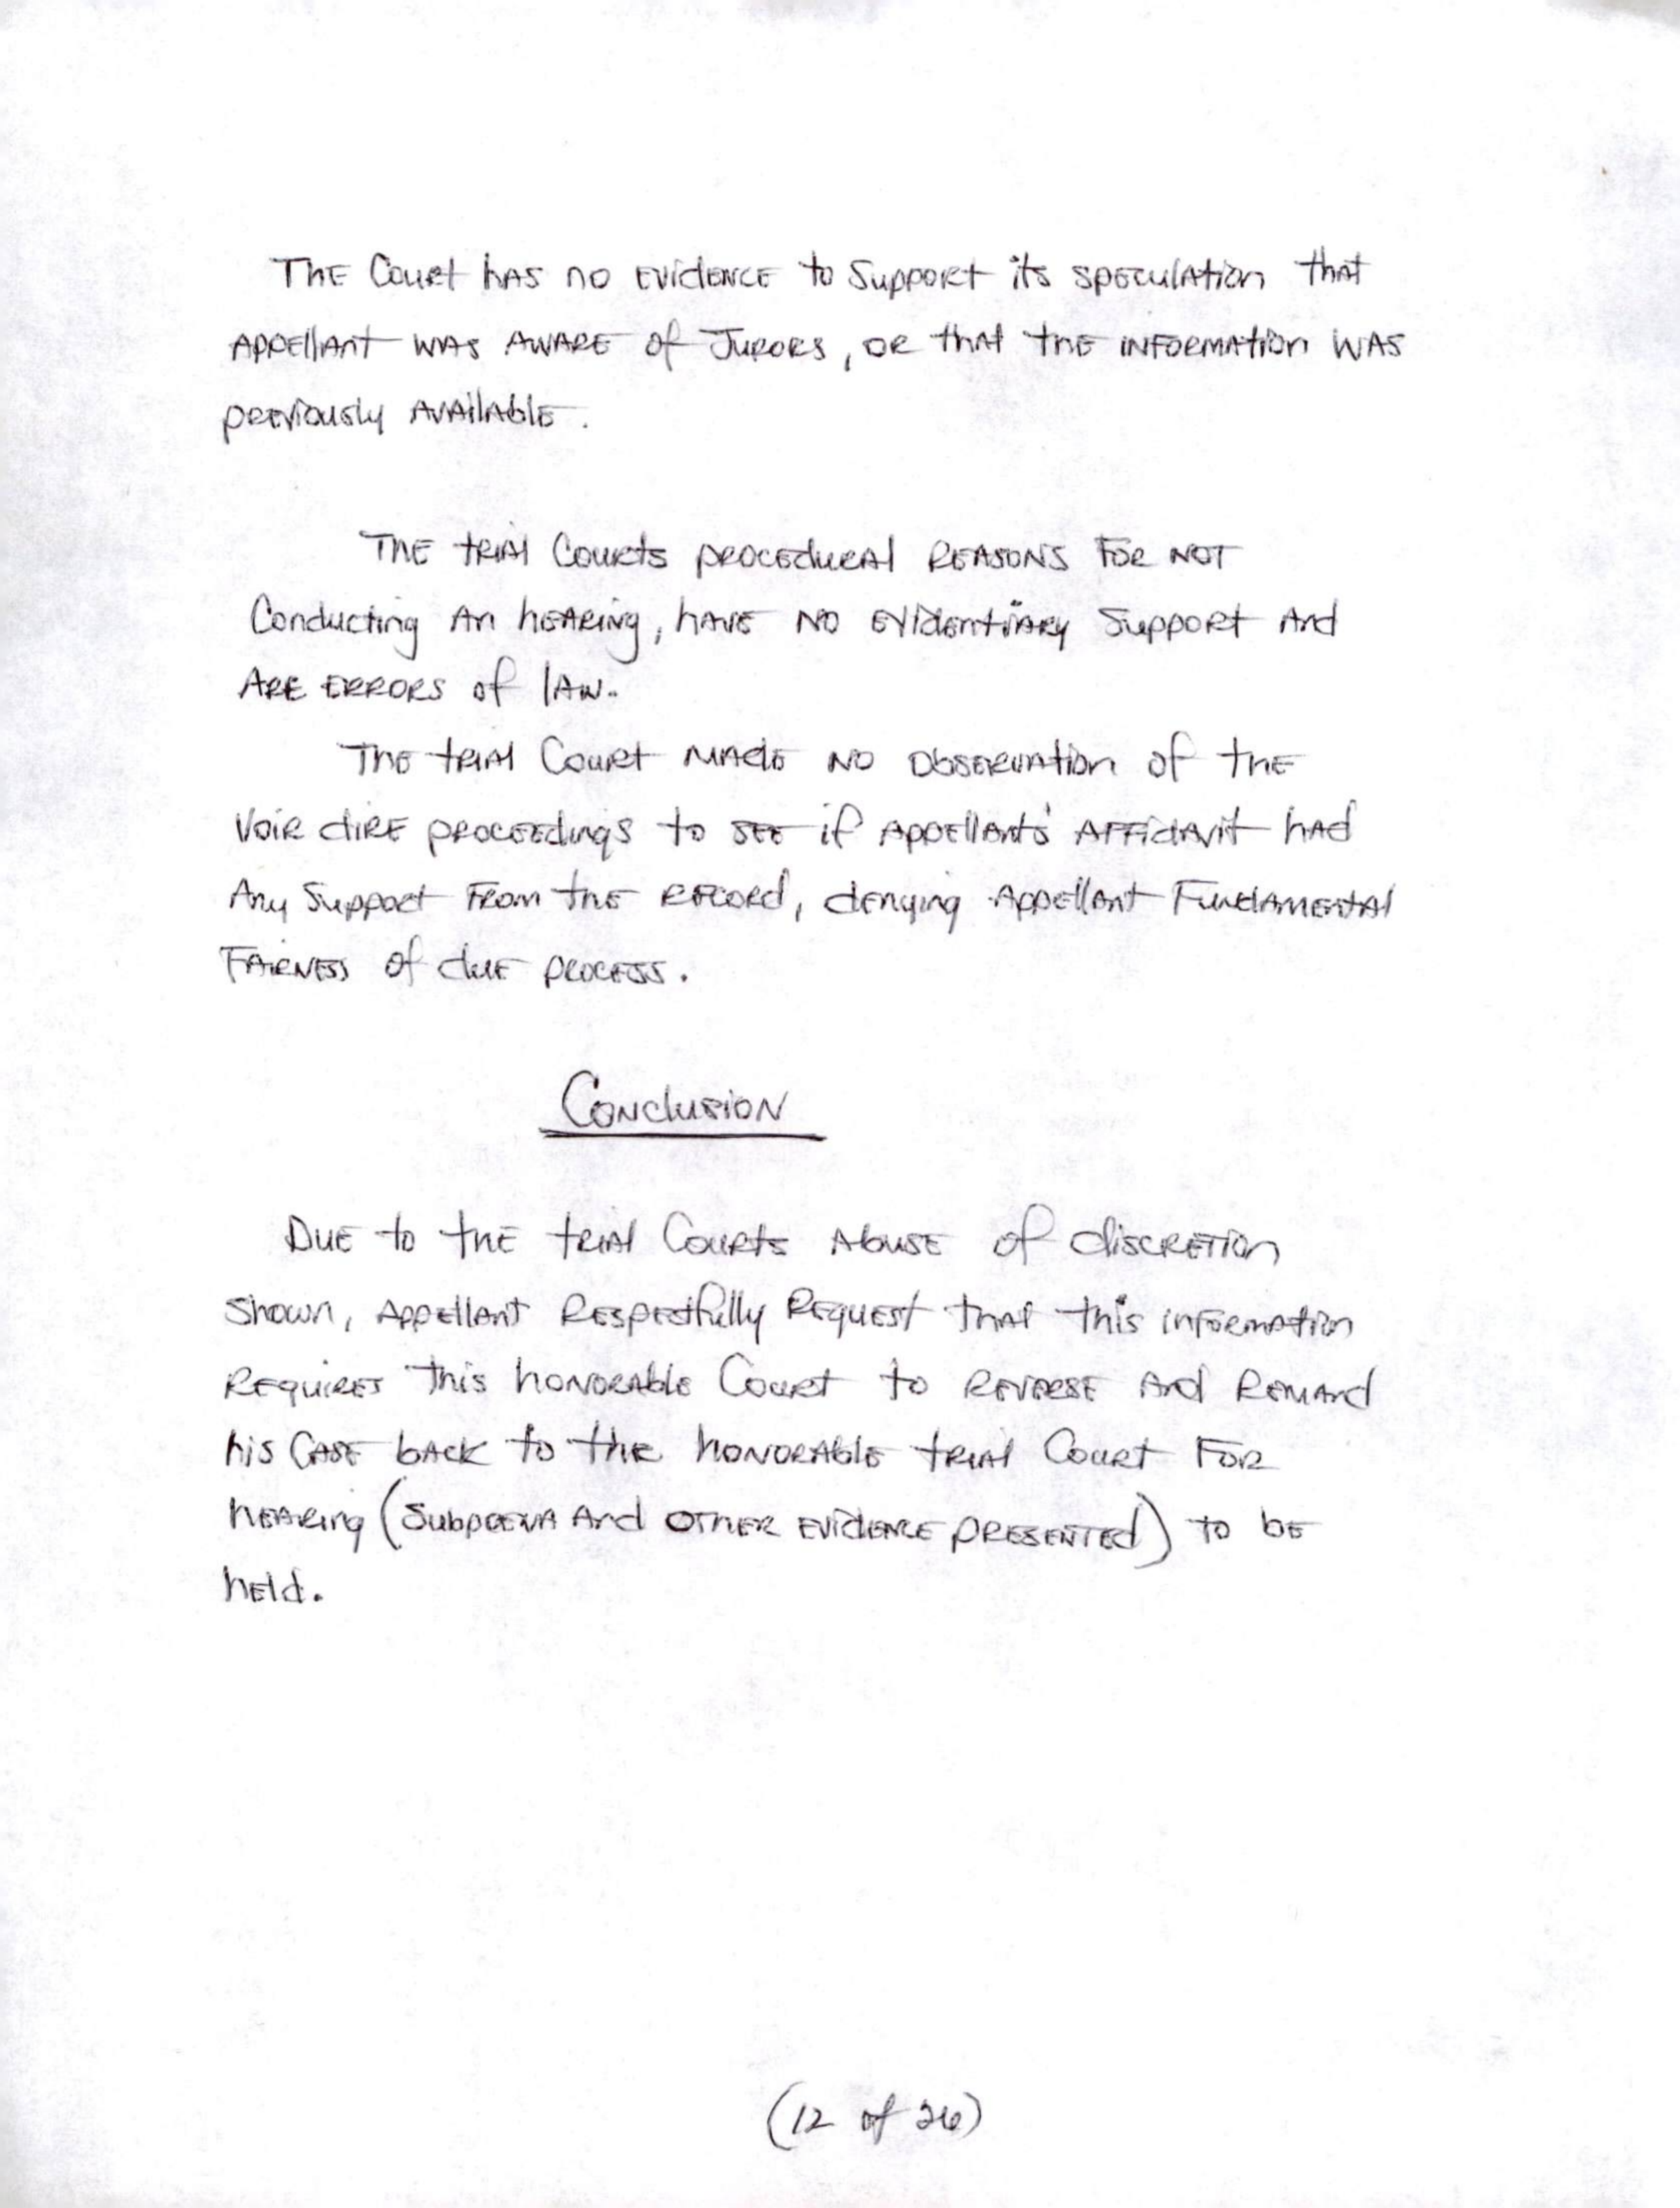 The Court has no evidence to support its speculation that
appellant was aware of Jurors, or that the information was
previously available.
The trial Courts procedural reasons for not
Conducting an hearing, have no evidentiary support and
are errors of law.
The trial Court made no observation of the
Voir dire proceedings to see if appellants' affidavit had
any support from the record, denying Appellant Fundamental
Fairness of due process.
Conclusion
Due to the trial Courts abuse of discretion
shown, appellant Respectfully Request that this information
requires this honorable Court to reverse and remand
his case back to the honorable trial Court for
hearing (subpoena and other evidence presented) to be
held.
(12 of 26)